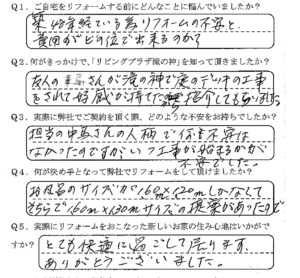 Q1. ご自宅をリフォームする前にどんなことに悩んでいましたか？
築48年経ている為リフォームの不安と、
費用がどの位で出来るのか？
Q2. 何がきっかけで、「リビングプラザ滝の神」を知って頂きましたか？
友人の さんが滝の神で庭のデッキの工事
をされて好感が持てた 紹介してもらいました
Q3. 実際に弊社でご契約を頂く際、どのような不安をお持ちでしたか？
担当の中島さんの人柄で何も不安は
なかったのですがいつ工事が始まるかが
不安でした。
Q4. 何が決め手となって弊社でリフォームをして頂けましたか？
お風呂のサイズが160cm×120cmしかなくて
そちらで160cm×130cmサイズの提案があったので
Q5. 実際にリフォームをおこなった新しいお家の生み心地はいかがで
すか？ とても快適に過ごして居ります。
ありがとうございました。